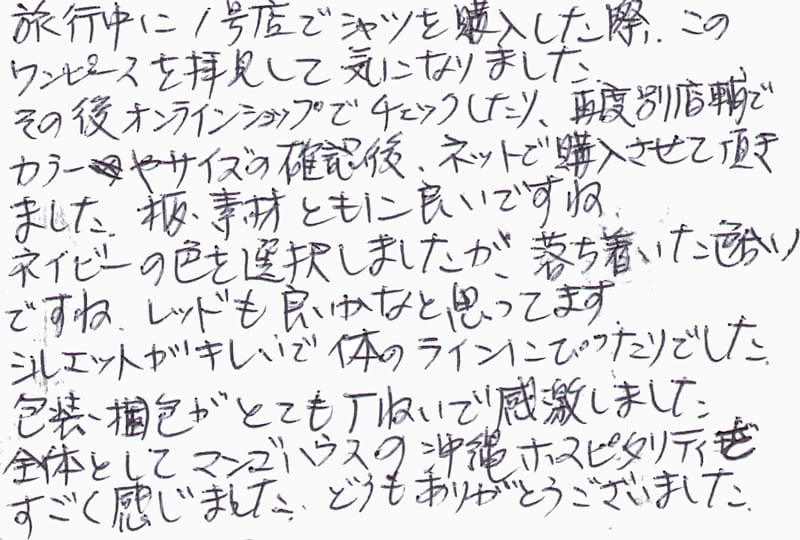 旅行中に1号店でシャツを購入した際、この
ワンピースを拝見して気になりました。
その後オンラインショップでチェックしたり、再度別店舗で
カラーやサイズの確認後、ネットで購入させて頂き
ました。柄、素材ともに良いですね。
ネイビーの色を選択しましたが、落ち着いた色合い
ですね。レッドも良いかなと思ってます
シルエットがキレイで体のラインにぴったりでした。
包装、梱包がとても丁ねいで感激しました。
全体としてマンゴハウスの沖縄ホスピタリティを
すごく感じました。どうもありがとうございました。